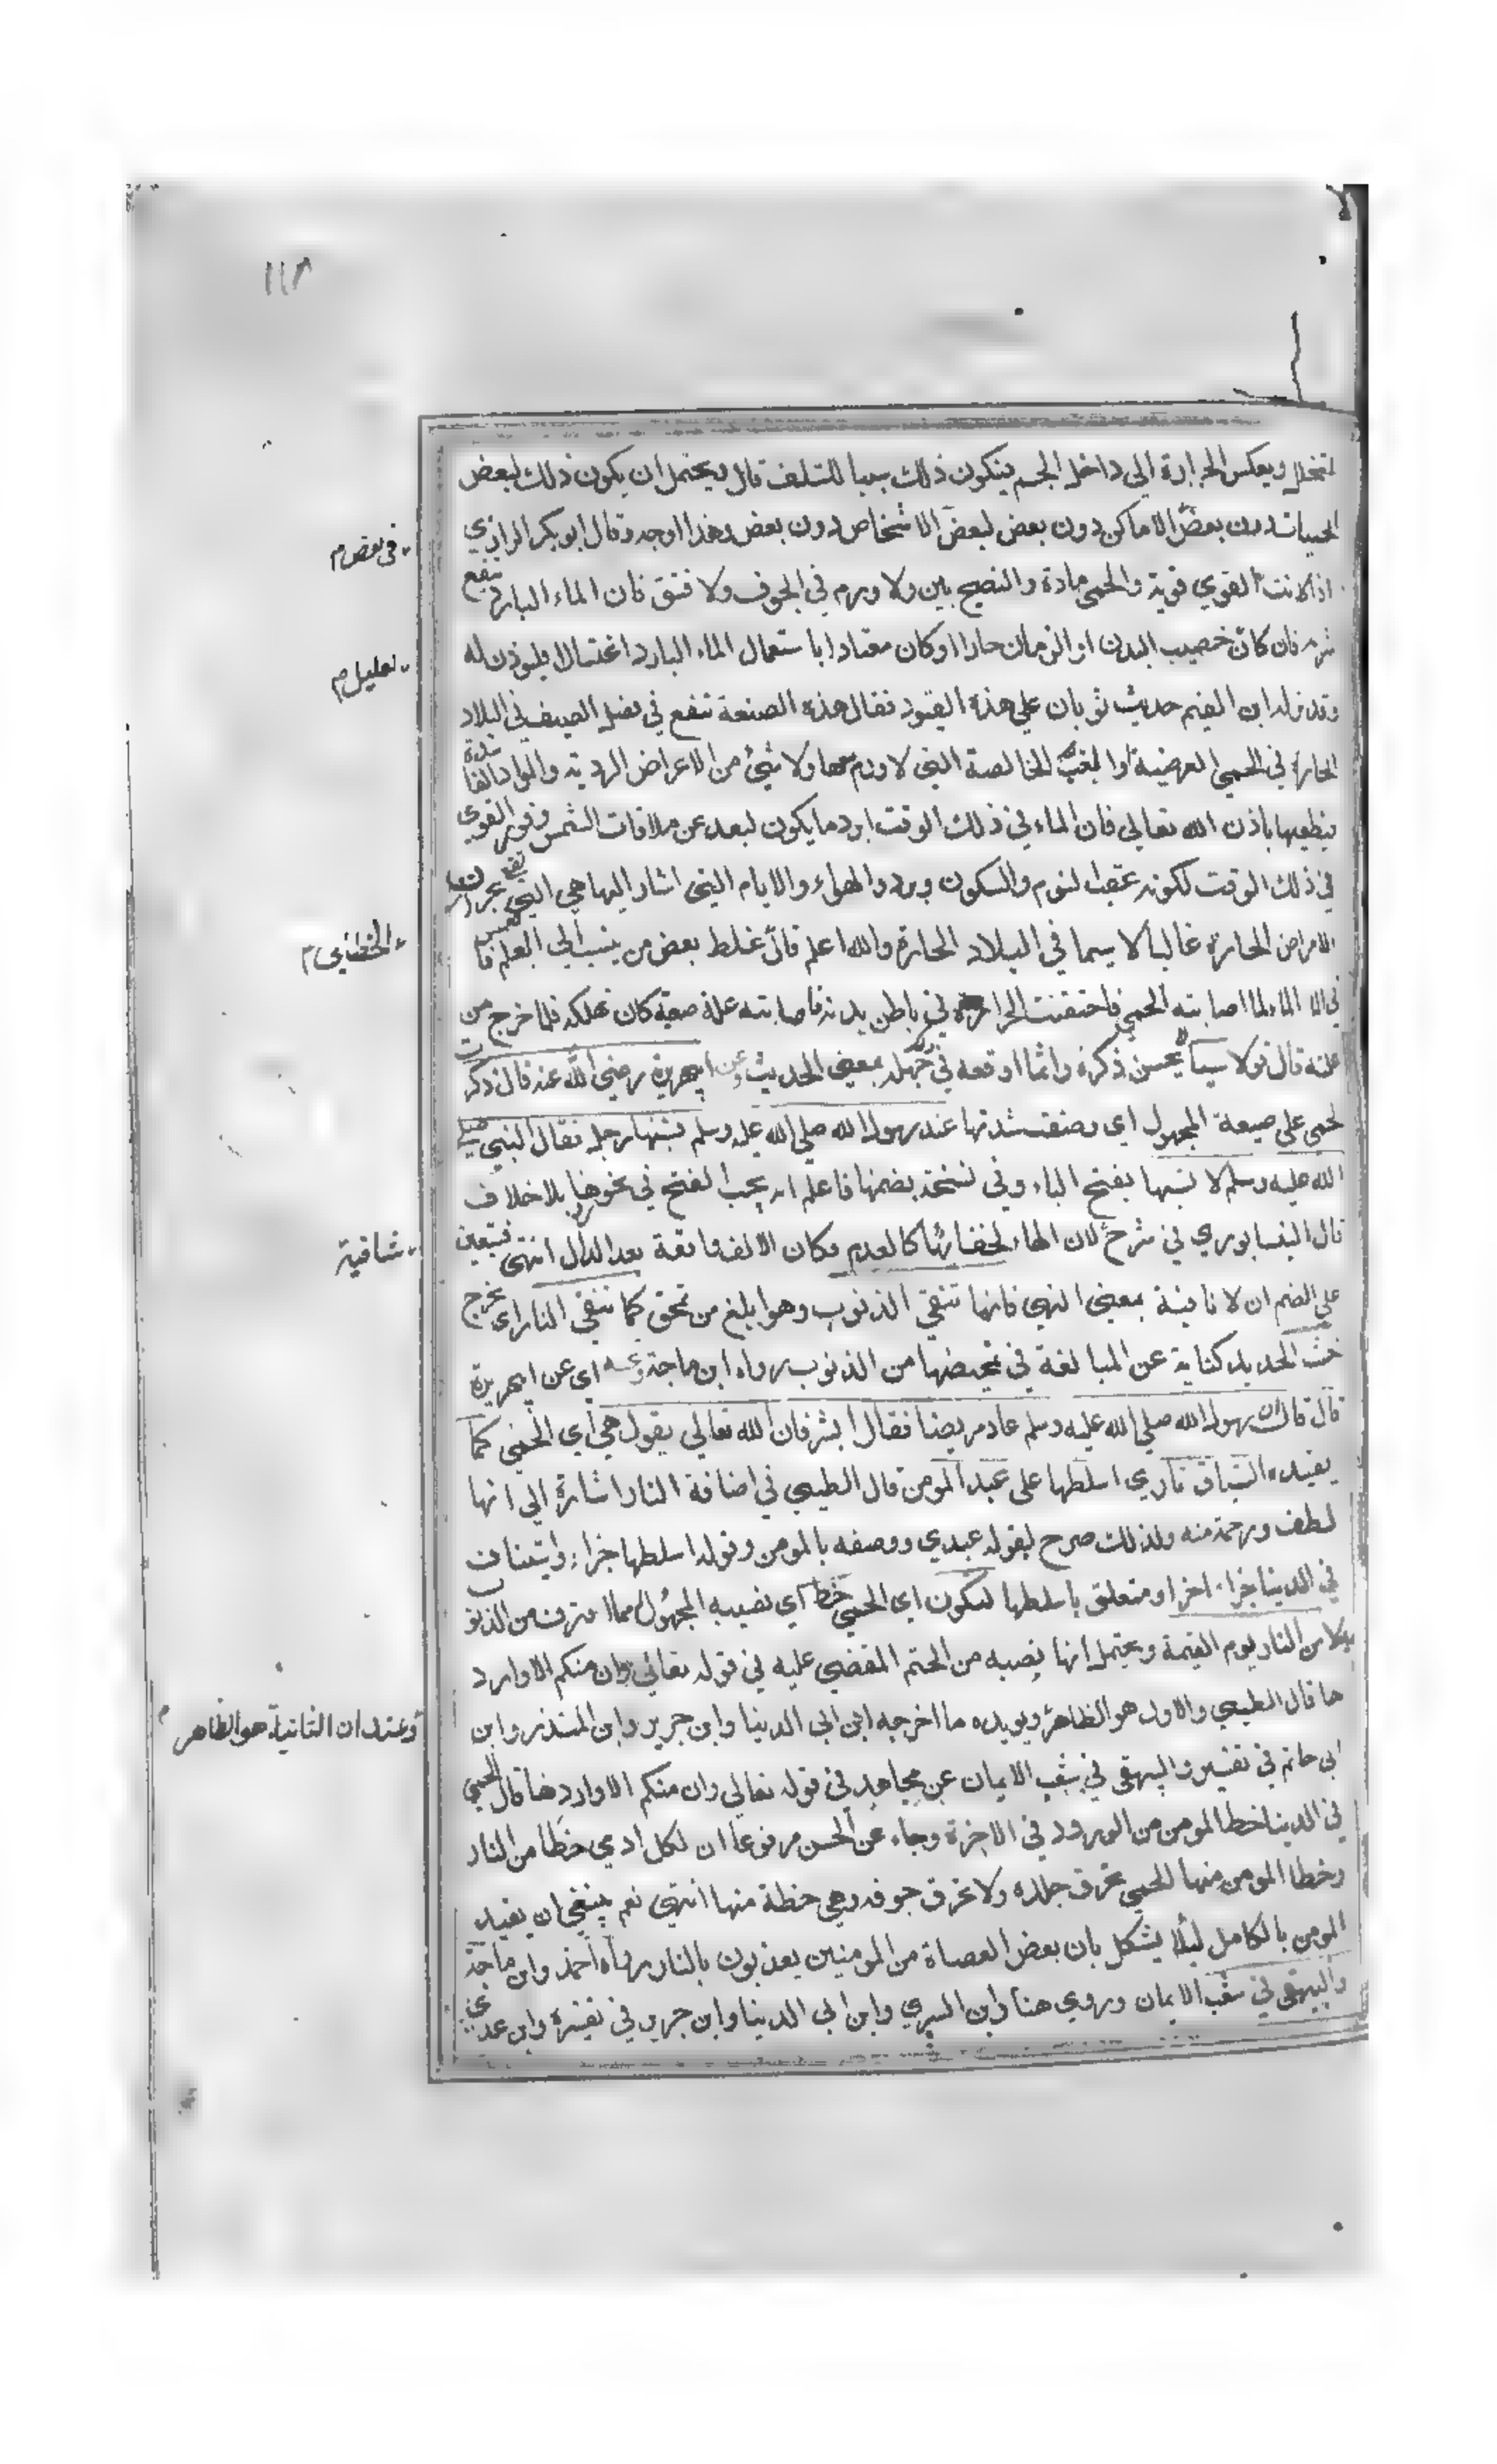 ١١٨
لتحلل ويعكس الحرارة الى داخل الجسم فيكون ذلك سببا للتلف قال ويحتمل ان يكون ذلك لبعض
الحميات دون بعض الاماكن دون بعض لبعض الاشخاص دون بعض وهذا اوجه وقال ابو بكر الرازي
في بعض م
اذا كانت القوي قوية والحمى حادة والنضيح بين ولا ورم في الجوف ولا فتق فان الماء البارد ينفع
شربه فان كان خصيب البدن او الزمان حارا وكان معتادا باستعمال الماء البارد اغتسالا فليوذن له
لعليل م
وقد نزل ابن القيم حديث ثوبان علي هذه القيود فقال هذه الصنعة تنفع في فصل الصيف في البلاد
الحارة في الحمي العرضية او الغب الخالصة التي لا ورم معها ولا شيئ من الاعراض الردية والمواد الفاسدة
فيطفيها باذن الله تعالي فان الماء في ذلك الوقت ابرد ما يكون لبعده عن ملاقات الشمس ووفور القوي
في ذلك الوقت لكونه عقب النوم والسكون وبرد والهواء والايام التي اشار اليها هي التي يقع بحران
الامراض الحارة غالبا لا سيما في البلاد الحارة والله اعلم قال غلط بعض من ينسب الي العلم فانغمس
الخطابي م
في الماء لما اصابته الحمي فاحتقنت الحرارة في باطن بدنه فاصابته علة صعبة كان تهلكه فلما خرج من
علته قال قولا سيئا لا يحسن ذكره وانما اوقعه في ذلك جهله بمعني الحديث وعن ابي هريرة رضي الله عنه قال ذكرت
الحمي علي صيغة المجهول اي وصفت شدتها عند رسول الله صلي الله عليه وسلم فسبها رجل فقال النبي صلي
الله عليه وسلم لا تسبها بفتح الباء وفي نسخة بضمها فاعلم انه يجب الفتح في نحو ردها بلا خلاف
قال النيسابوري في شرح لان الهاء لخفائها كالعدم فكان الالف واقعة بعد الدال انتهى فتعين
شافية
علي الضم ان لا نافية بمعني النهي فانها تنقي الذنوب وهو ابلغ من تمحق كما تنقي النار اي تخرج
خبث الحديد كناية عن المبالغة في تمحيضها من الذنوب رواه ابن ماجة وعنه اي عن ابي هريرة
قال قال ان رسول الله صلي الله عليه وسلم عاد مريضا فقال ابشر فان الله تعالي يقول هي اي الحمي كما
يفيده السياق ناري اسلطها على عبد المومن قال الطيبي في اضافة النار اشارة الي انها
لطف ورحمة منه ولذلك صرح لقوله عبدي ووصفه بالمومن وقوله اسلطها خبر او استيناف
في الدنيا خبر اخر او متعلق باسلطها لتكون اي الحمي حظا اي نصيبه المجهول مما اقترف من الذنوب
بدلا من النار يوم القيمة ويحتمل انها نصيبه من الحتم المقضي عليه في قوله تعالي وان منكم الا وارد
ها قال الطيبي والاول هو الظاهر ويويده ما اخرجه ابن ابي الدنيا وابن جرير وابن المنذر وابن
وعندي ان الثانية هو الظاهر م
ابي حاتم في تفسير والبيهقي في شعب الايمان عن مجاهد في قوله تعالي وان منكم الا واردها قال الحمي
في الدنيا حظ المومن من الورود في الاخرة وجاء عن الحسن مرفوعا ان لكل ادمي حظا من النار
وحظ المومن منها الحمي تحرق جلده ولا تحرق جوفه وهي حظة منها انتهى نعم ينبغي ان يقيد
المومن بالكامل ليلا يشكل بان بعض العصاة من المومنين يعذبون بالنار رواه احمد وابن ماجة
والبيهقي في شعب الايمان وروي هناد ابن السري وابن ابي الدنيا وابن جرير في تفسيره وابن عدي